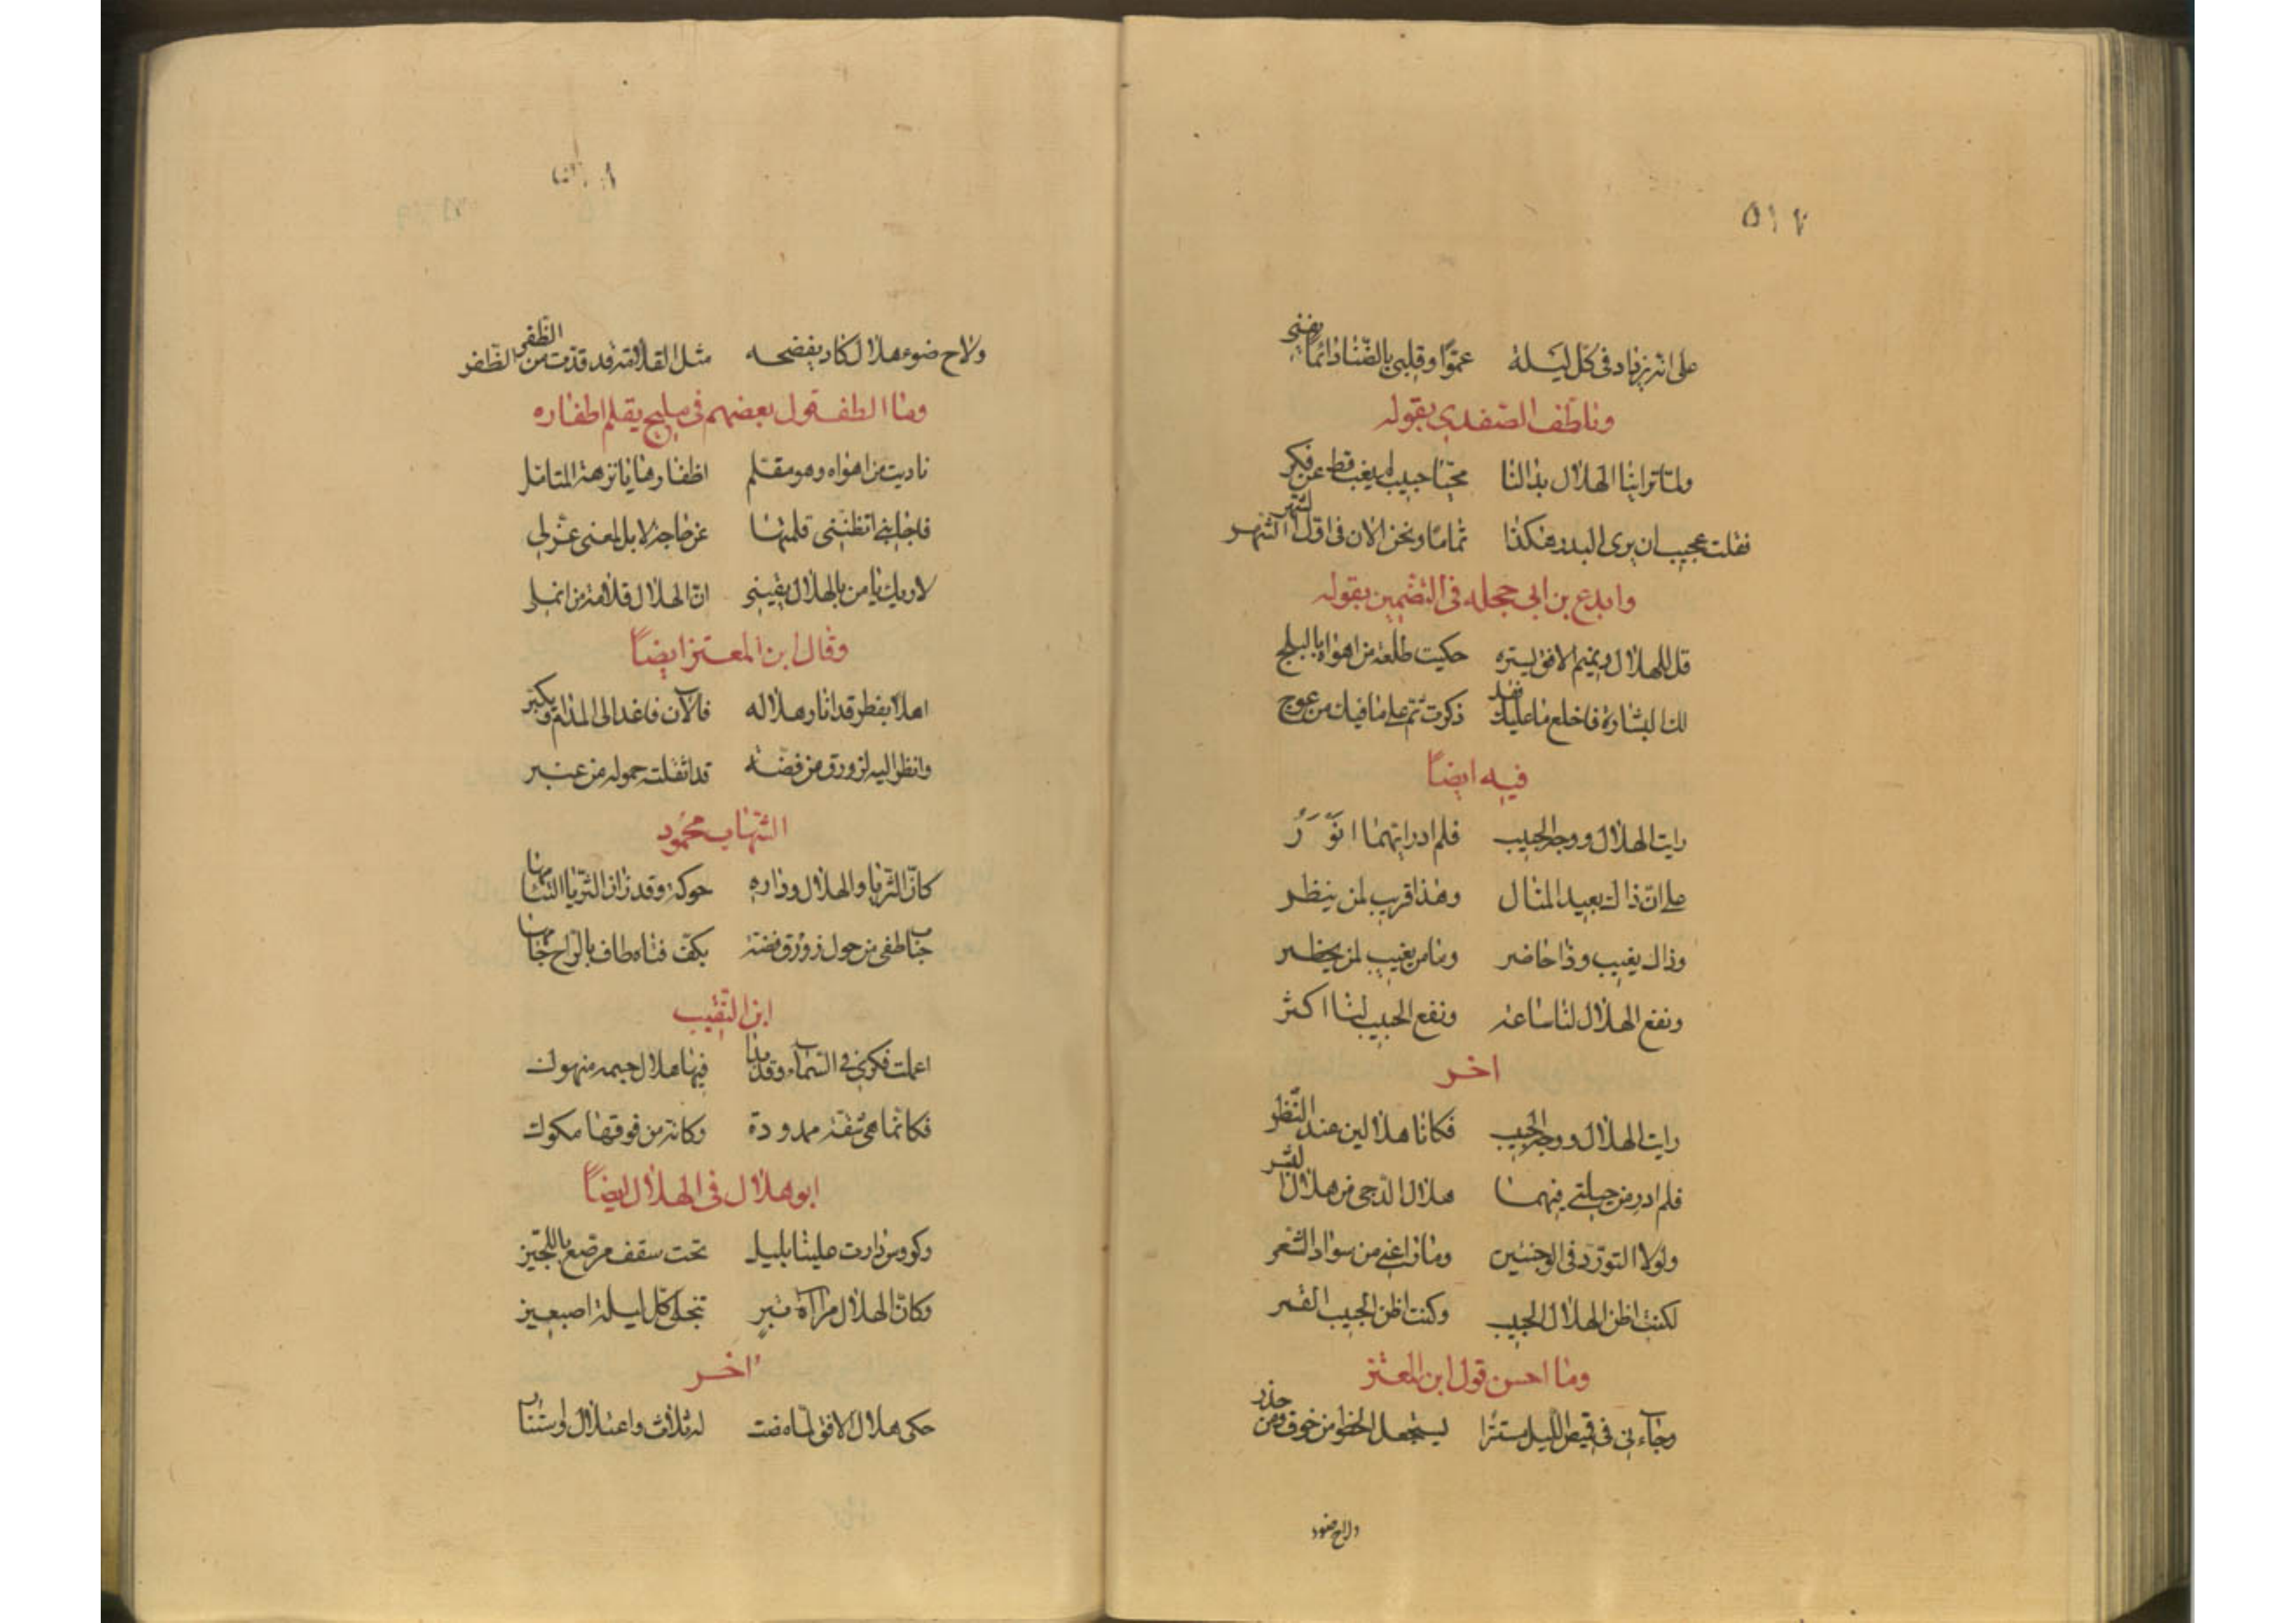 ٥١٧
على انه يزداد في كل ليلة نموّا وقلبي بالضنا دائما يفنى
وناطف الصفدي بقوله
ولما تراينا الهلال بدا لنا محيّا حبيب لم يغب قط عن فكر
فقلت عجيب ان يرى البدر هكذا تماما ونحن الان في اوّل الشهر
وابدع بن ابي حجله في التضمين بقوله
قل للهلال وغيم الافق يستره حكيت طلعة من اهواه بالبلج
لك البشارة فاخلع ما عليك فقد ذكرت ثم على ما فيك من عوج
فيه ايضاً
رايت الهلال ووجه الحبيب فلم ادر ايهما انوَرُ
على ان ذاك بعيد المنال وهذا قريب لمن ينظر
وذاك يغيب وذا حاضر وما من يغيب لمن يحظر
ونفع الهلال لنا ساعة ونفع الحبيب لنا اكثر
اخر
رايت الهلال ووجه الحبيب فكانا هلالين عند النّظر
فلم ادر من حيلتي فيهما هلال الدجى من هلال البشر
ولولا التورّد في الوجنتين وما راعني من سواد الشعر
لكنت اظن الهلال الحبيب وكنت اظن الحبيب القمر
وما احسن قول ابن المعتز
وجآءني في قميص الليل مستترا يستجعل الخطو من خوف ومن حذر
ولاح ضوء
٥١٨
ولاح ضوء هلال كاد يفضحه مثل القلامة قد قدّت من الظّفر
وما الطف قول بعضهم في مليح يقلم اظفاره
ناديت من اهواه وهو مقلم اظفارها يا نزهة المتامل
فاجابني اتظنني قلمتها عن حاجة لا بل لمعنى عنّ لي
لاريك يا من بالهلال يقيسني انّ الهلال قلامة من انملي
وقال ابن المعتز ايضاً
اهلا بفطر قد انار هلاله فالآن فاغد الى المدام وبكّر
وانظر اليه كزورق من فضّة قد اثقلته حمولة من عنبر
الشهاب محمُود
كانّ الثريا والهلال ودارة حوكة وقد زان الثريا التئامها
حباب طفى من حول زورق فضة بكفّ فتاه طاف بالراح جامها
ابن النّقيب
اعملت فكري في السّمآء وقد بدا فيها هلال جسمه منهوك
فكانّما هي شقة ممدودة وكانه من فوقها مكوك
ابو هلال في الهلال ايضاً
وكووس دارت علينا بليل تحت سقف مرصّع باللجين
وكانّ الهلال مرآة تبرٍ تنجلى كل ليلة اصبعين
اخر
حكى هلال الافق لمّا مضت له ثلاث واعتلال وسنا